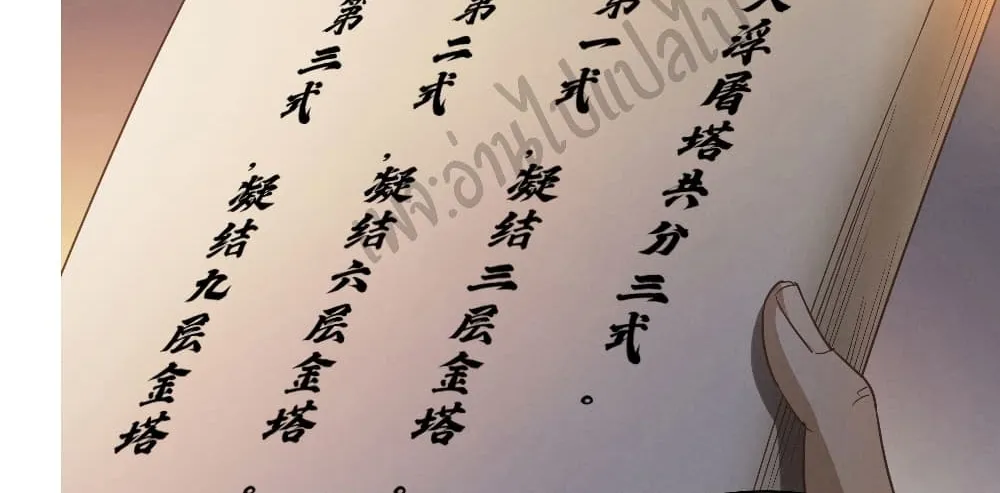 大浮屠塔共分三式。
第一式，凝结三层金塔
第二式，凝结六层金塔。
第三式，凝结九层金塔。
เพจ:อ่านไปแปลไป